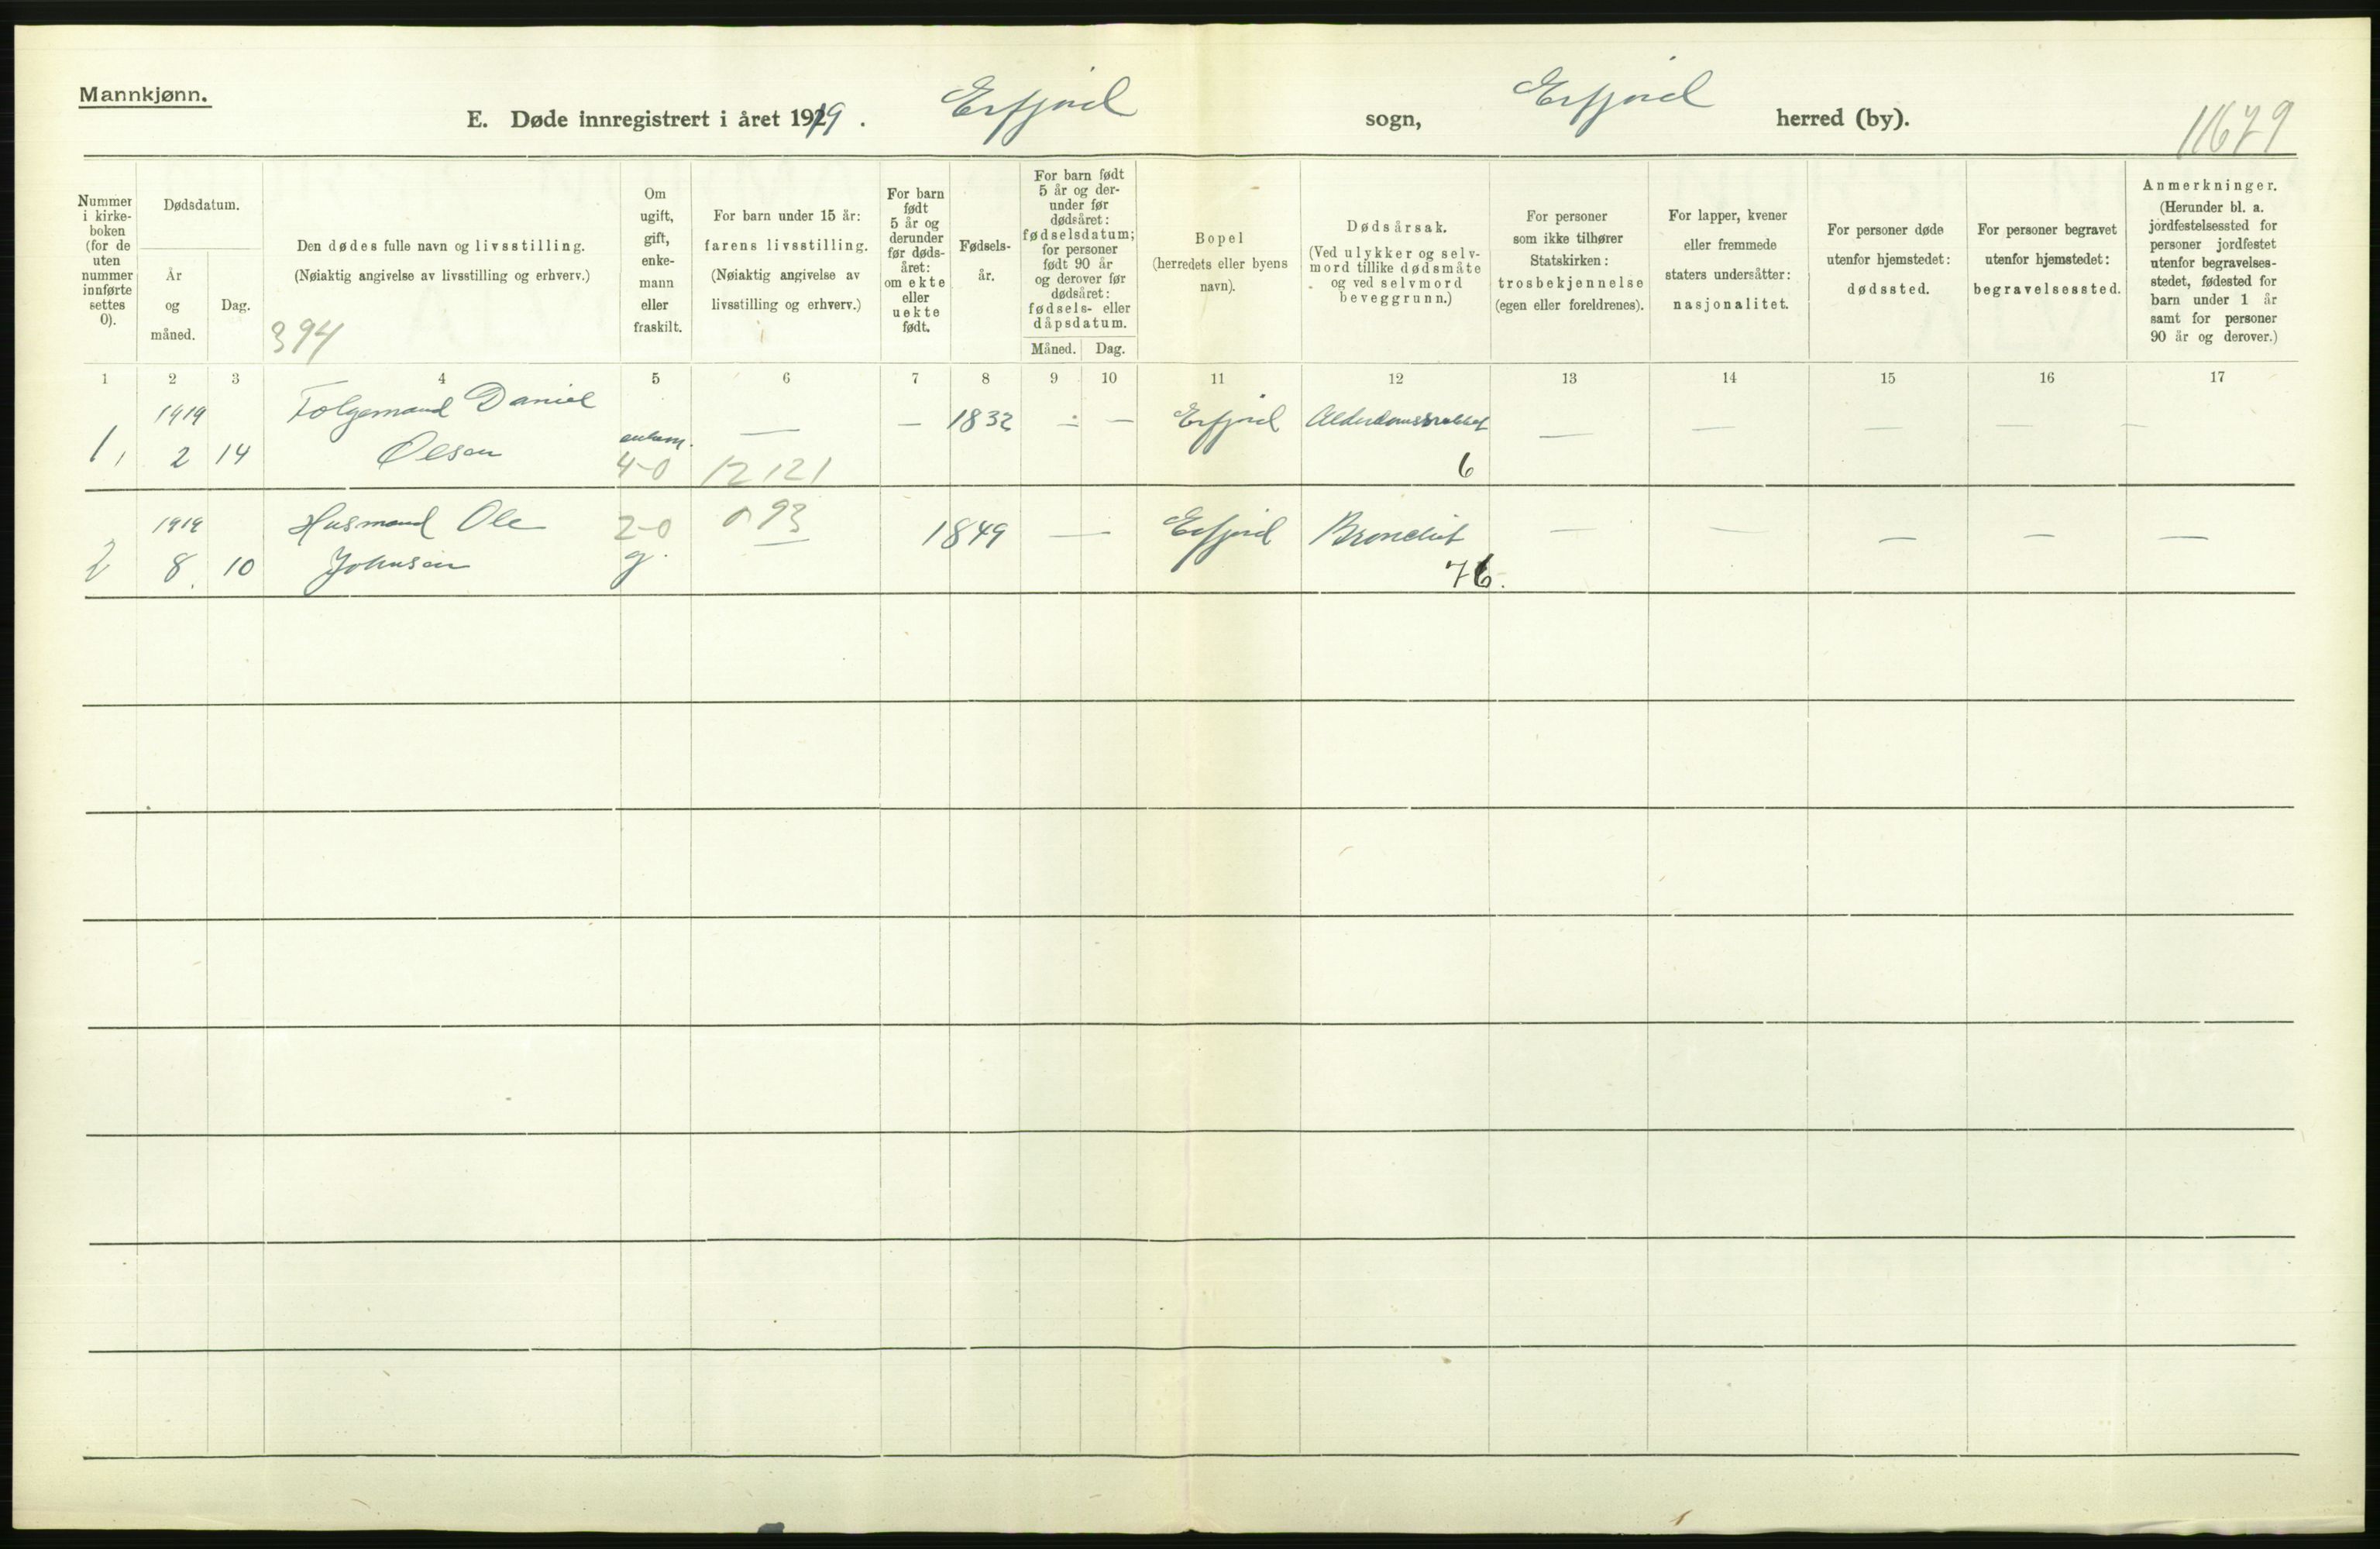 Mannkjønn.
E. Døde innregistrert i året 1919. Erfjord sogn, Erfjord herred (by).
11679
Nummer i kirke-boken (for de uten nummer innførte settes 0).
Dødsdatum.
År og måned.
Dag.
Den dødes fulle navn og livsstilling.
(Nøiaktig angivelse av livsstilling og erhverv.)
394
Om ugift, gift, enke-mann eller fraskilt.
For barn under 15 år: farens livsstilling.
(Nøiaktig angivelse av livsstilling og erhverv.)
For barn født 5 år og derunder før døds-året: om ekte eller uekte født.
Fødsels-år.
For barn født 5 år og der-under før dødsåret: fødselsdatum; for personer født 90 år og derover før dødsåret: fødsels- eller dåpsdatum.
Måned. Dag.
Bopel
(herredets eller byens navn).
Dødsårsak.
(Ved ulykker og selv-mord tillike dødsmåte og ved selvmord beveggrunn.)
For personer som ikke tilhører Statskirken: trosbekjennelse (egen eller foreldrenes).
For lapper, kvener eller fremmede staters undersåtter: nasjonalitet.
For personer døde utenfor hjemstedet: dødssted.
For personer begravet utenfor hjemstedet: begravelsessted.
Anmerkninger.
(Herunder bl. a. jordfestelsessted for personer jordfestet utenfor begravelses-stedet, fødested for barn under 1 år samt for personer 90 år og derover.)
1 2 3 4 5 6 7 8 9 10 11 12 13 14 15 16 17
1919 Folgemand Daniel — — 1832 — — Erfjord — — — — —
1, 2 14 Olsen enkem. 4-0 12121 6
1919 Husmand Ole 2-0 093 1849 — Erfjord Bronchit — — — — —
2 8. 10 Johnsen g. 76.